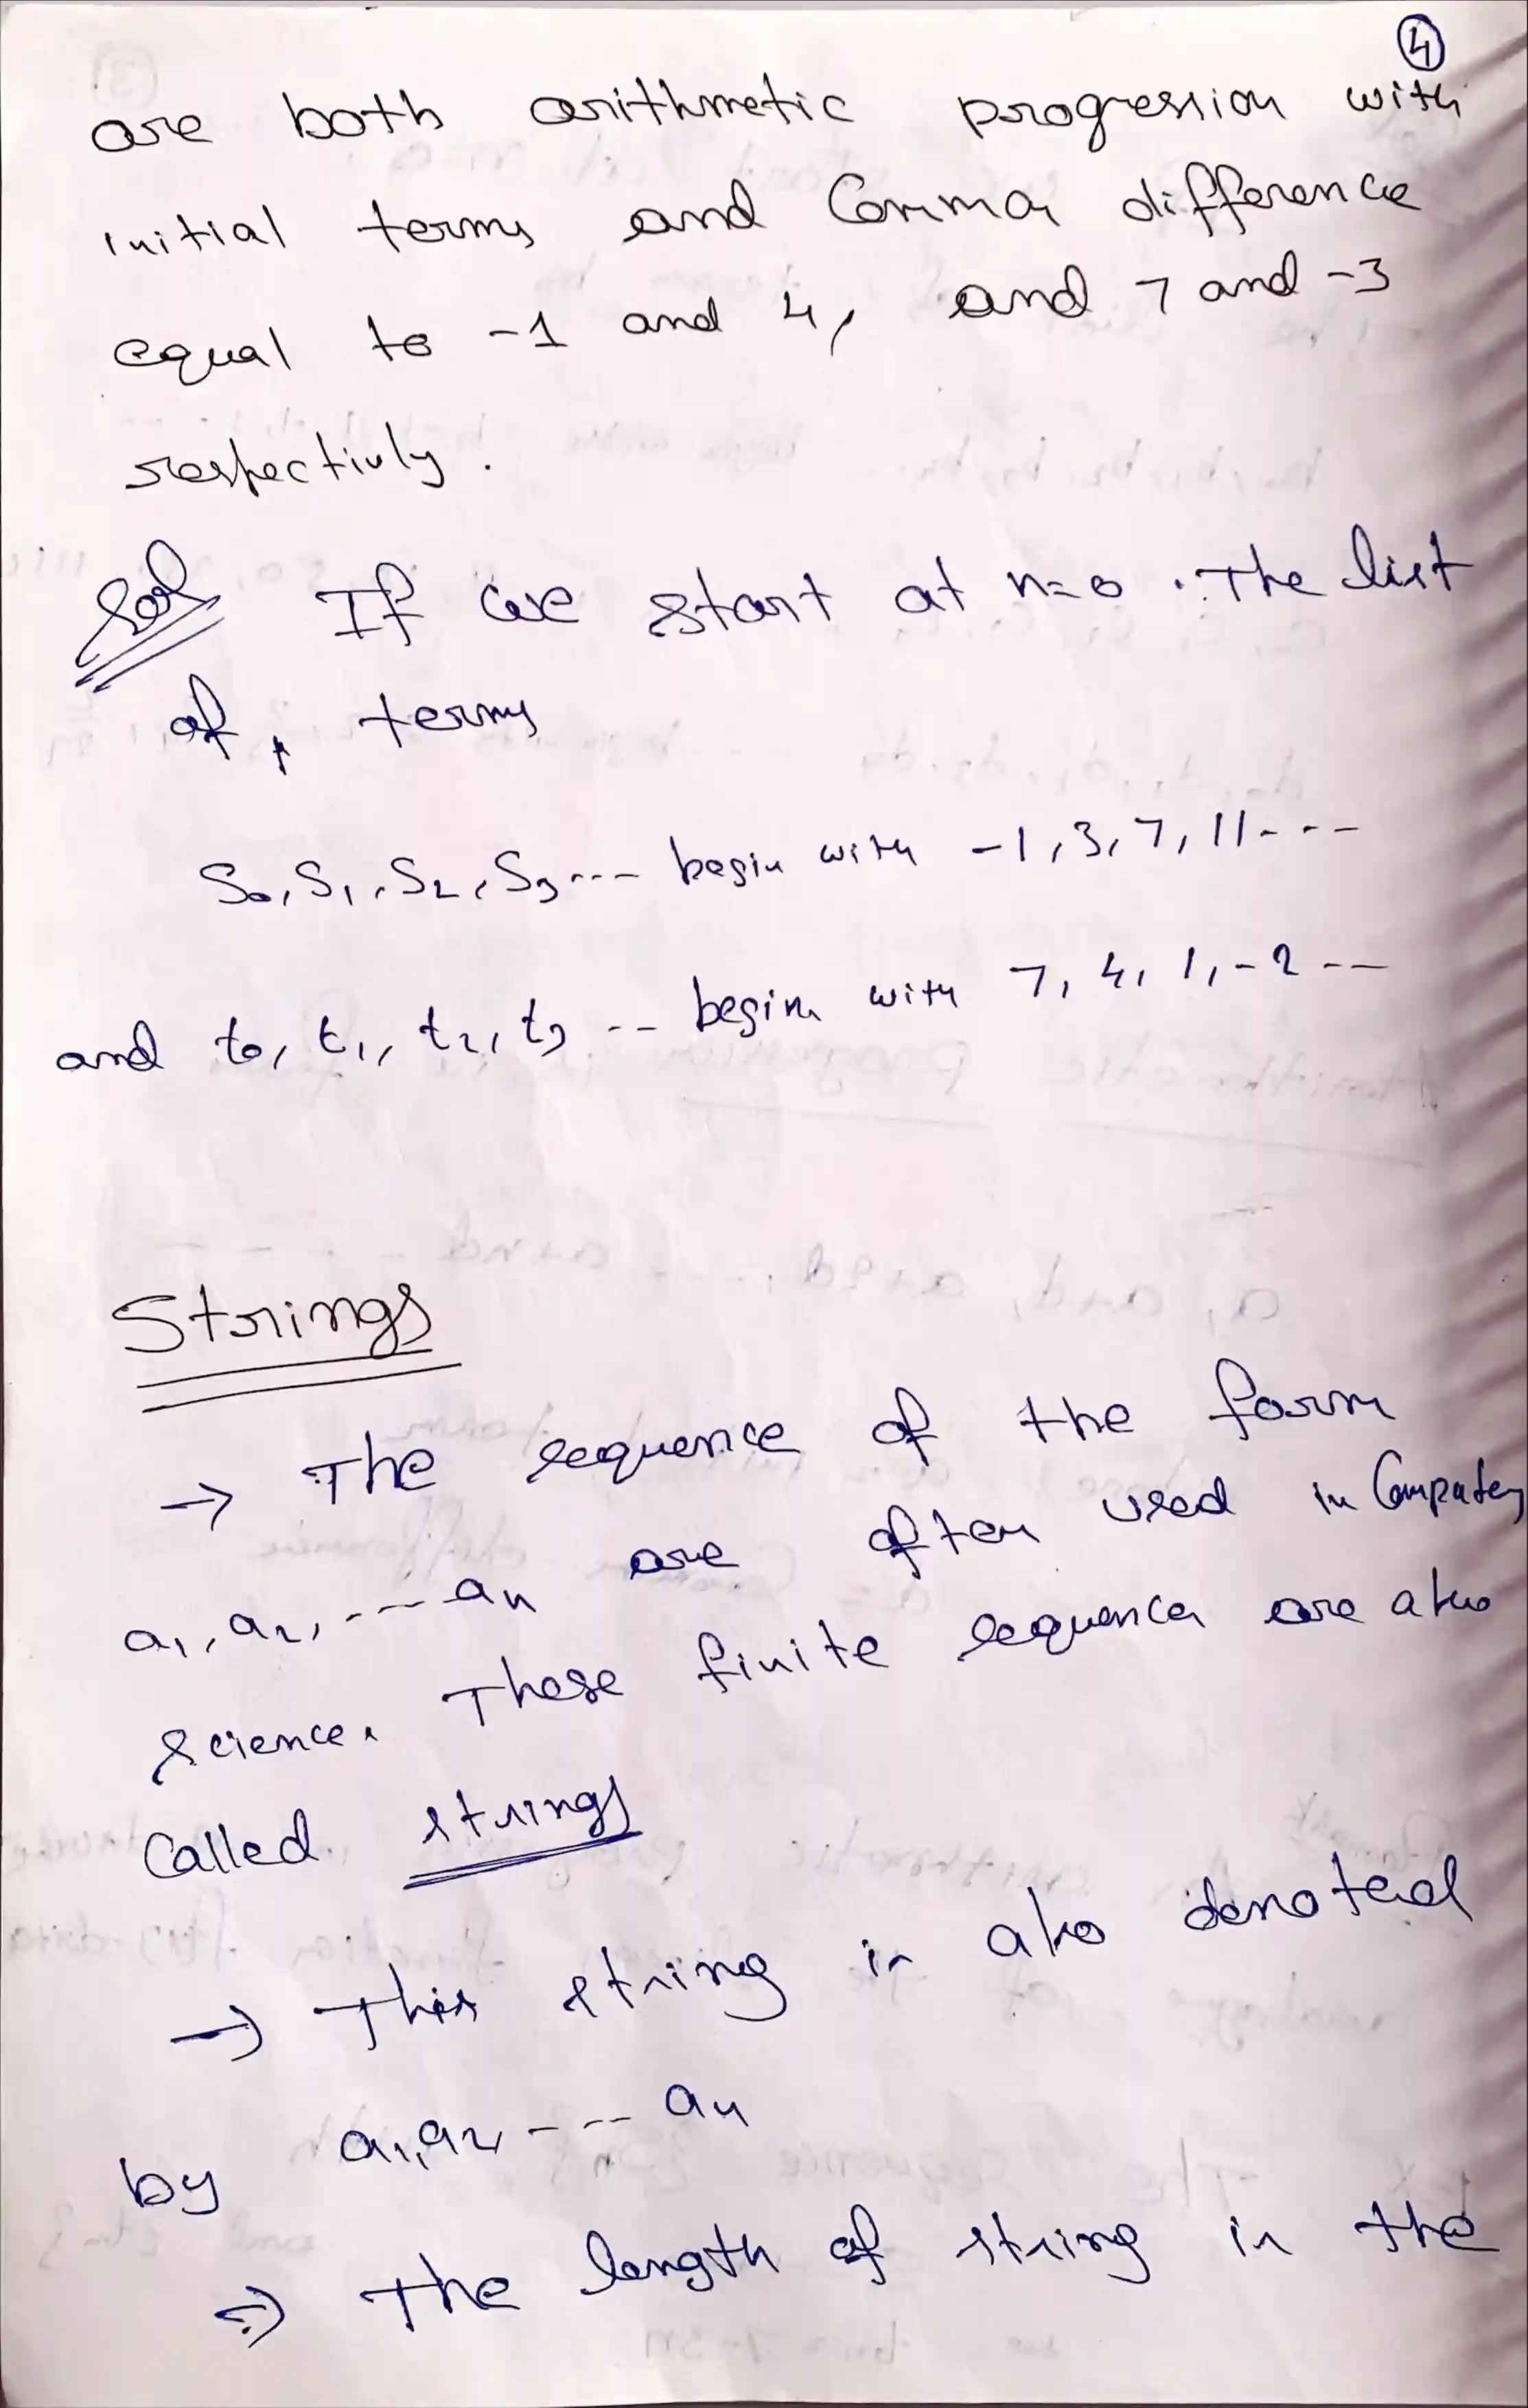 4
are both arithmetic progression with
initial terms and Common difference
equal to -1 and 4, and 7 and -3
respectivly.
Sol If we start at n=0. The list
of, terms
S₀, S₁, S₂, S₃ --- begin with -1, 3, 7, 11 - - -
and t₀, t₁, t₂, t₃ -- begin with 7, 4, 1, -2 --
Strings
→ The sequence of the form
a₁, a₂, --- aₙ are often used in Computer
science. These finite sequences are also
Called strings
→ This string is also denoted
by a₁, a₂, --- aₙ
⇒ The length of string is the